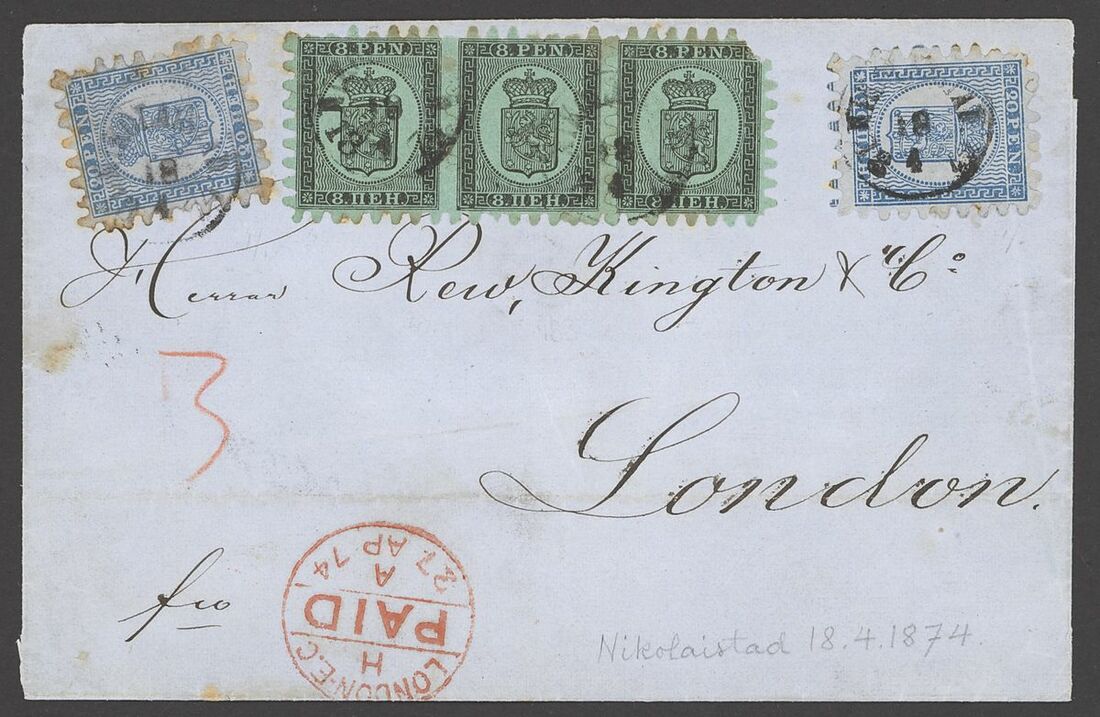 8. PEN. 8. PEN. 8. PEN.
20 PENNI 20 PEN.
8. ПЕН. 8. ПЕН. 8. ПЕН.
18
4
18
4
Herrar Rew, Kington & Cº
3
London.
fco
LONDON-E.C
H
PAID
A
27 AP 74
Nikolaistad 18.4.1874.